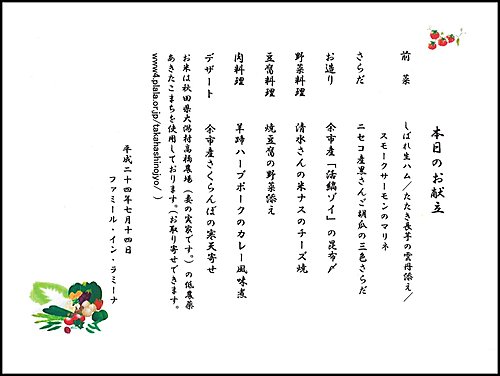 本日のお献立
前菜　しばれ生ハム／たたき長芋の雲丹添え／
スモークサーモンのマリネ
さらだ　ニセコ産黒さんご胡瓜の三色さらだ
お造り　余市産「活鰯ゾイ」の昆布〆
野菜料理　清水さんの米ナスのチーズ焼
豆腐料理　焼豆腐の野菜添え
肉料理　羊蹄ハーブポークのカレー風味煮
デザート　余市産さくらんぼの寒天寄せ
お米は秋田県大潟村高橋農場（妻の実家です。）の低農薬
あきたこまちを使用しております。（お取り寄せできます。
www4.plala.or.jp/takahashinojyo/ ）
平成二十四年七月十四日
ファミール・イン・ラミーナ